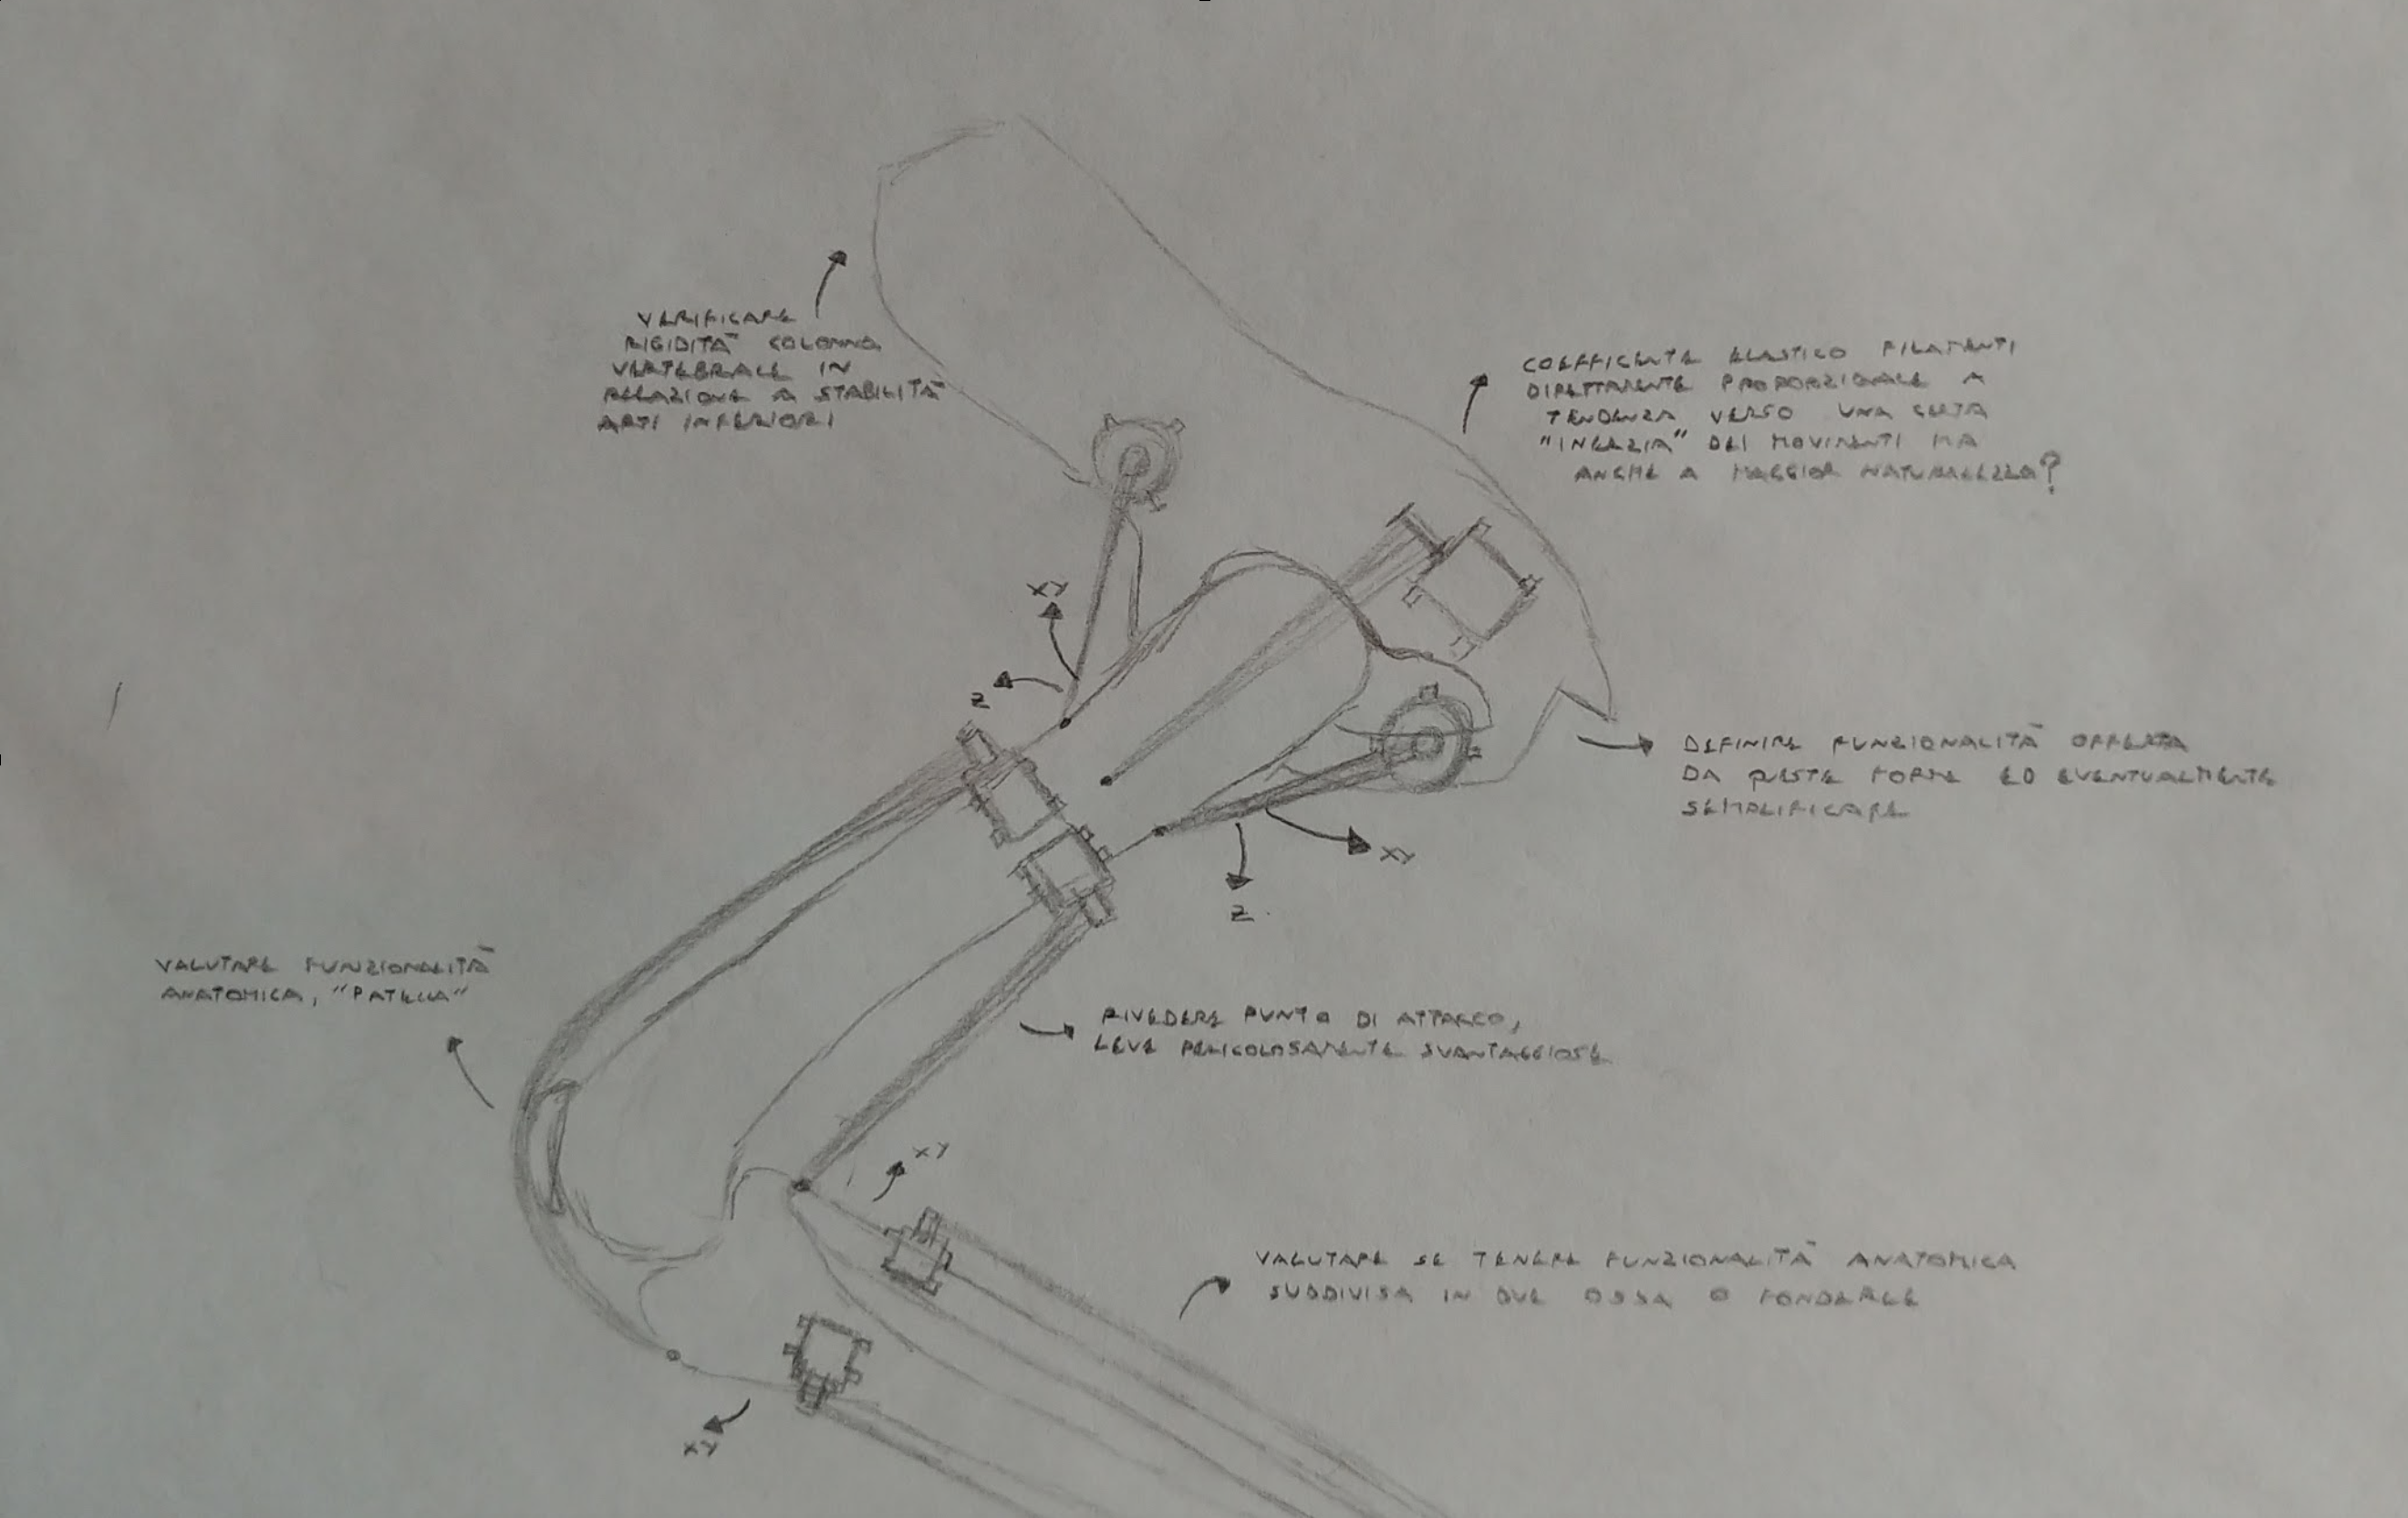 VERIFICARE
RIGIDITÀ COLONNA
VERTEBRALE IN
RELAZIONE A STABILITÀ
ARTI INFERIORI
COEFFICIENTE ELASTICO FILAMENTI
DIRETTAMENTE PROPORZIONALE A
TENDENZA VERSO UNA CERTA
"INERZIA" DEI MOVIMENTI MA
ANCHE A MAGGIOR NATURALEZZA?
XY
Z
DEFINIRE FUNZIONALITÀ OFFERTA
DA QUESTE FORME ED EVENTUALMENTE
SEMPLIFICARE
XY
Z
VALUTARE FUNZIONALITÀ
ANATOMICA, "PATELLA"
RIVEDERE PUNTO DI ATTACCO,
LEVE PERICOLOSAMENTE SVANTAGGIOSE
XY
VALUTARE SE TENERE FUNZIONALITÀ ANATOMICA
SUDDIVISA IN DUE OSSA O FONDERLE
XY